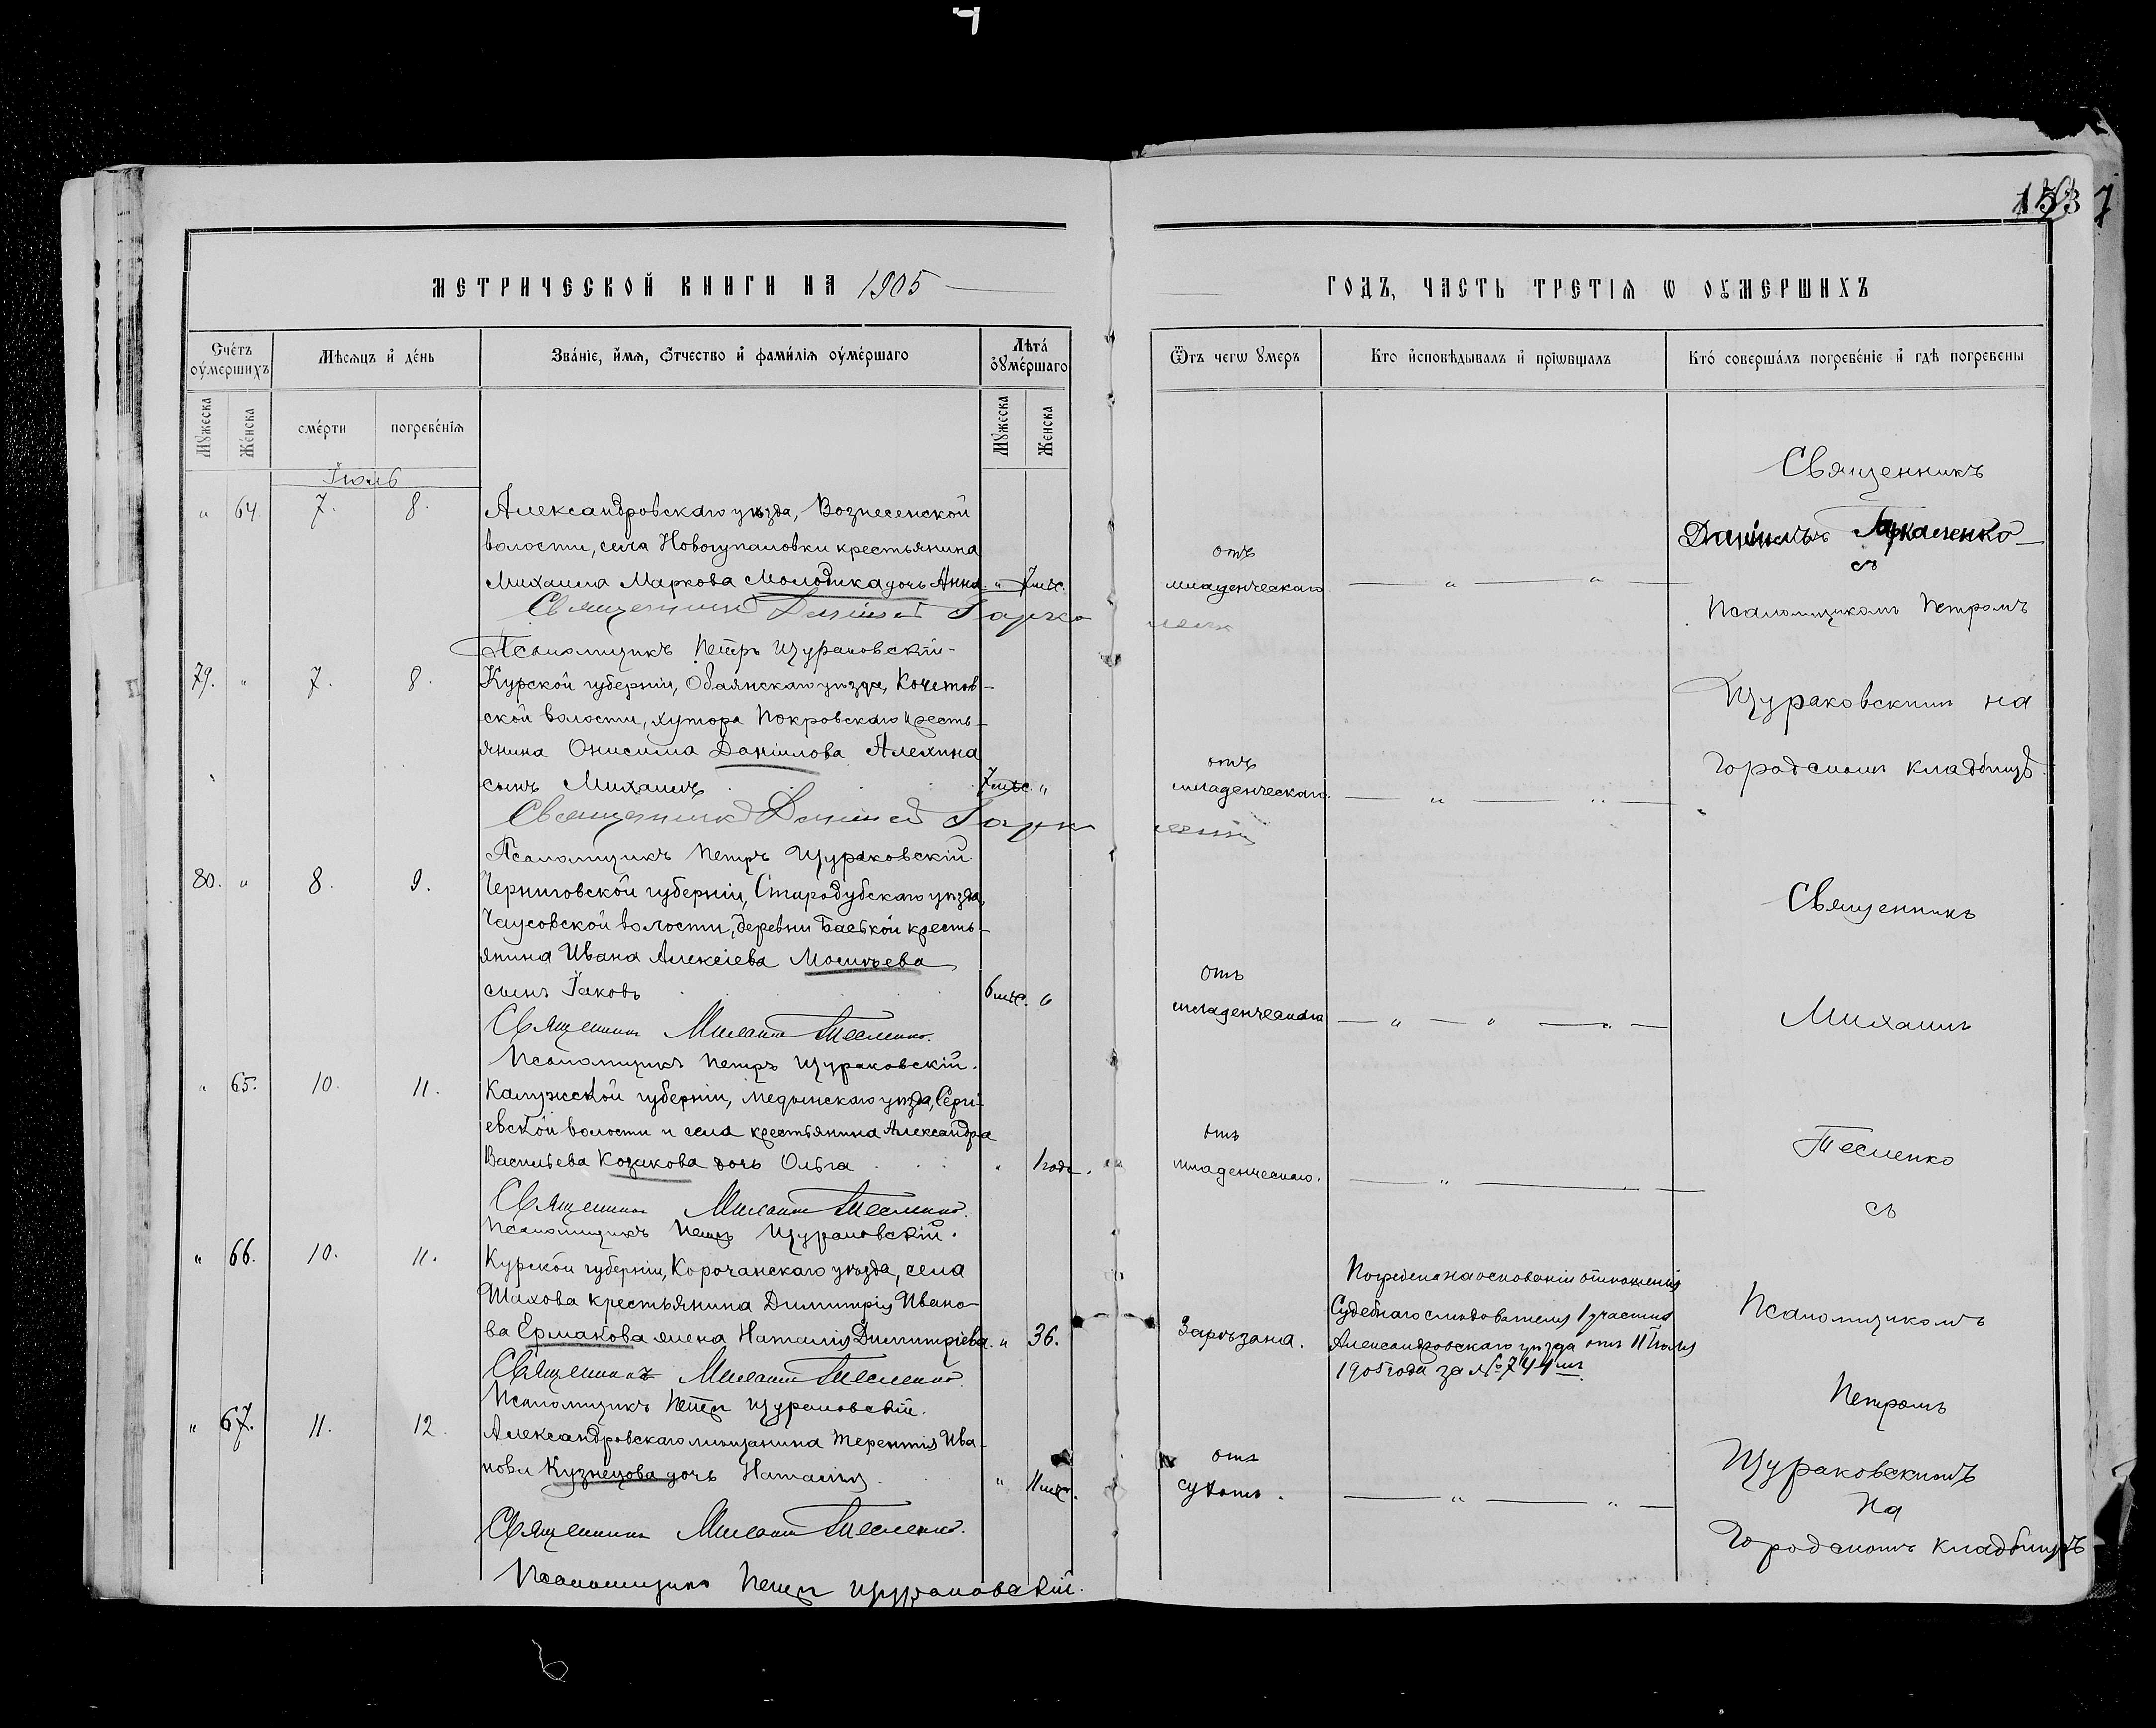 1537
МЕТРИЧЕСКОЙ КНИГИ НА 1905
ГОДЪ, ЧАСТЬ ТРЕТІѦ Ѡ ОУМЕРШИХЪ
Счетъ оумершихъ
Мѣсѧцъ и день
Званіе, имѧ, отчество и фамиліѧ оумершаго
Лѣта оумершаго
Ѿтъ чегѡ умеръ
Кто исповѣдывалъ и пріѡбщалъ
Кто совершалъ погребеніе и гдѣ погребены
Мужеска
Женска
смерти
погребеніѧ
Мужеска
Женска
Іюль
„ 64 7. 8.
Александровскаго уѣзда, Вознесенской
волости, села Новогупаловки крестьянина
Михаила Маркова Молодика дочь Анна. „ 7 мѣс.
отъ
младенческаго
Священникъ Даніилъ Гаркаленко
Псаломщикъ Петръ Щураковскій
79. „ 7. 8.
Курской губерніи, Обаянскаго уѣзда, Кочетов-
ской волости, хутора Покровскаго кресть-
янина Онисима Даніилова Алехина
сынъ Михаилъ 7 мѣс. „
отъ
младенческаго.
Священникъ Даніилъ
Псаломщикъ Петръ Щураковскій.
Священникъ
Даніилъ
съ
Псаломщикомъ Петромъ
Щураковскимъ на
Городскомъ кладбищѣ.
80. „ 8. 9.
Черниговской губерніи, Стародубскаго уѣзда,
Чаусовской волости, деревни кресть-
янина Ивана Алексіева
сынъ Іаковъ 6 мѣс. „
отъ
младенческаго
Священникъ Михаилъ Тесленко.
Псаломщикъ Петръ Щураковскій.
„ 65. 10. 11.
Калужской губерніи, Медынскаго уѣзда, Серги-
евской волости и села крестьянина Александра
Васильева Козакова дочь Ольга „ 1 годъ.
отъ
младенческаго.
Священникъ Михаилъ Тесленко.
Псаломщикъ Петръ Щураковскій.
„ 66. 10. 11.
Курской губерніи, Корочанскаго уѣзда, села
Шахова крестьянина Димитрія Ивано-
ва Ермакова жена Наталія Димитріева. „ 36.
Зарѣзана.
Погребена на основаніи отношенія
Судебнаго слѣдователя 1 участка
Александровскаго уѣзда отъ 11 Іюля
1905 года за № 744мъ
Священникъ Михаилъ Тесленко.
Псаломщикъ Петръ Щураковскій.
„ 67. 11. 12.
Александровскаго мѣщанина Терентія Ива-
нова Кузнецова дочь Наталія „ 11 мѣс.
отъ
сухотъ.
Священникъ Михаилъ Тесленко.
Псаломщикъ Петръ Щураковскій.
Священникъ
Михаилъ
Тесленко
съ
Псаломщикомъ
Петромъ
Щураковскимъ
на
Городскомъ кладбищѣ